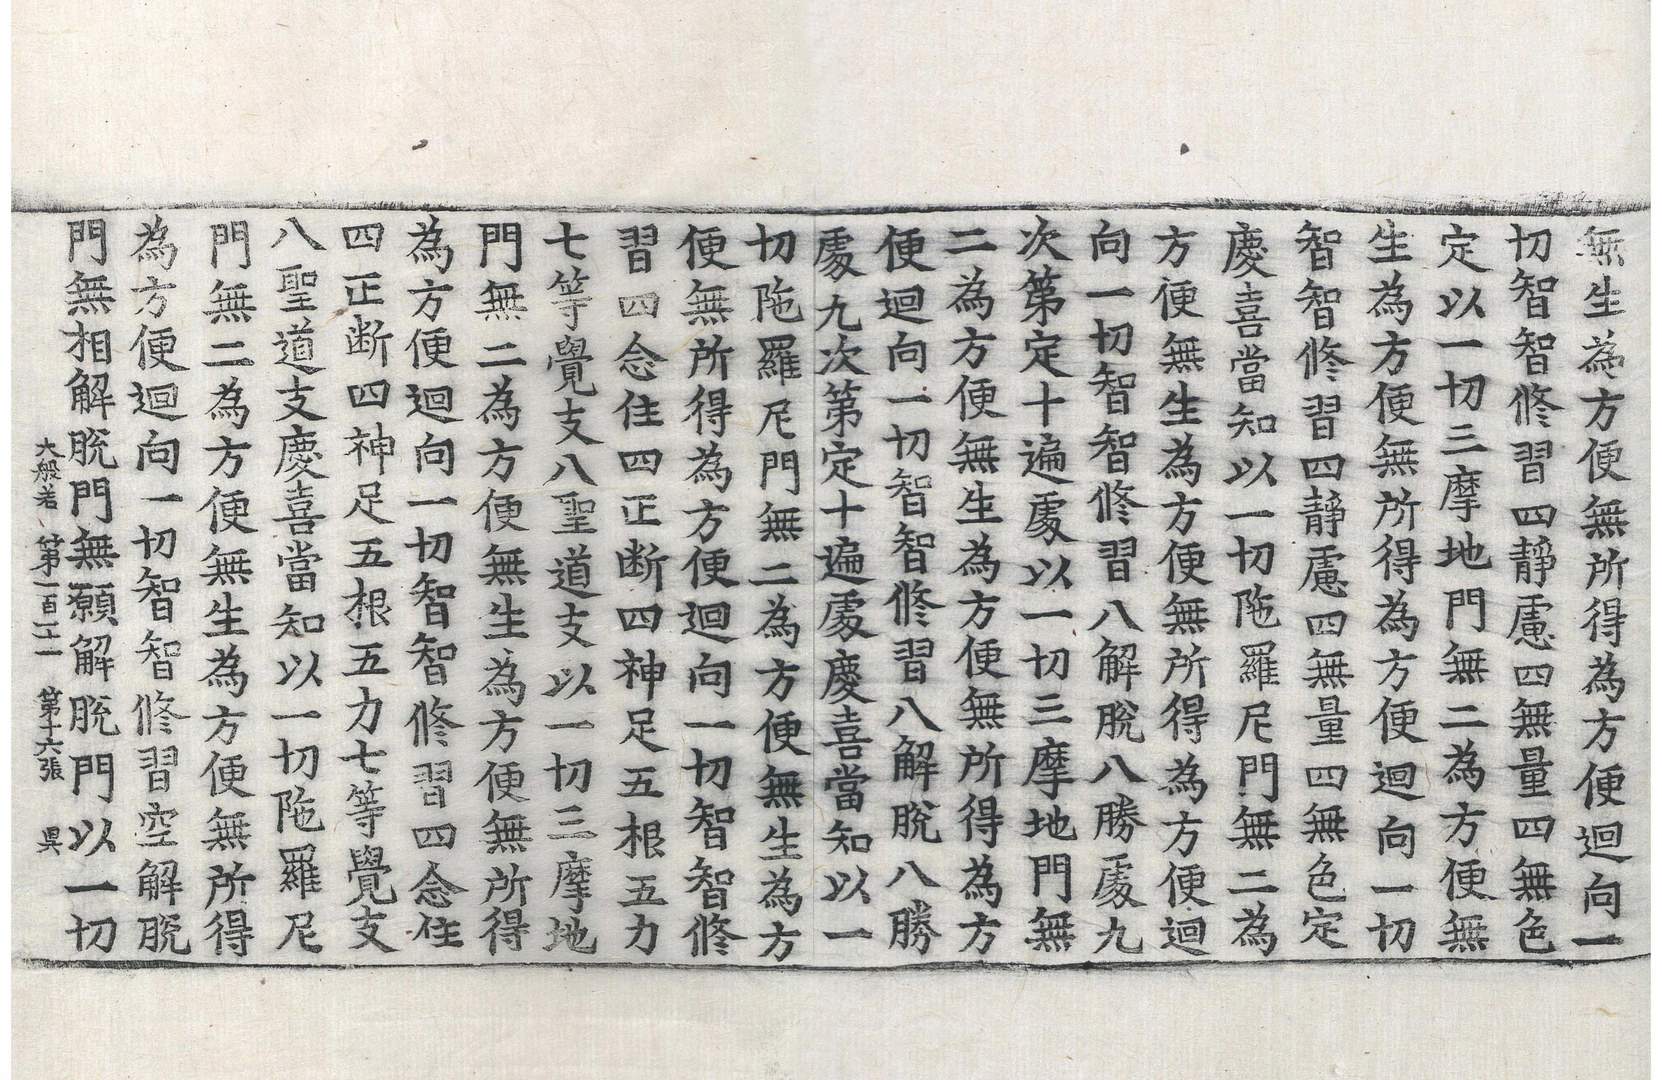 無生為方便無所得為方便迴向一
切智智修習四靜慮四無量四無色
定以一切三摩地門無二為方便無
生為方便無所得為方便迴向一切
智智修習四靜慮四無量四無色定
慶喜當知以一切陁羅尼門無二為
方便無生為方便無所得為方便迴
向一切智智修習八解脫八勝處九
次第定十遍處以一切三摩地門無
二為方便無生為方便無所得為方
便迴向一切智智修習八解脫八勝
處九次第定十遍處慶喜當知以一
切陁羅尼門無二為方便無生為方
便無所得為方便迴向一切智智修
習四念住四正断四神足五根五力
七等覺支八聖道支以一切三摩地
門無二為方便無生為方便無所得
為方便迴向一切智智修習四念住
四正断四神足五根五力七等覺支
八聖道支慶喜當知以一切陁羅尼
門無二為方便無生為方便無所得
為方便迴向一切智智修習空解脫
門無相解脫門無願解脫門以一切
大般若 第一百一十一 第十六張 昃